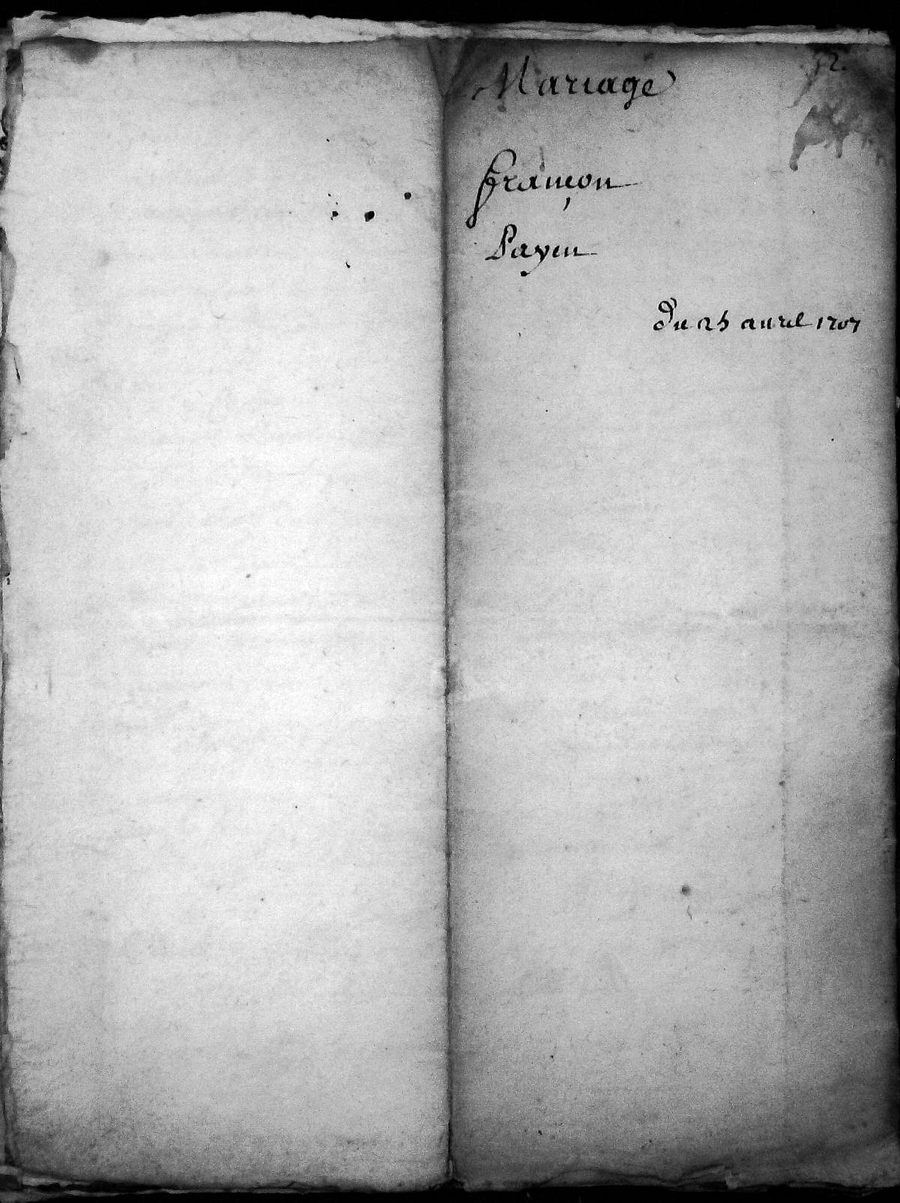 52.
Mariage
françon
Payen
Du 25 auril 1707